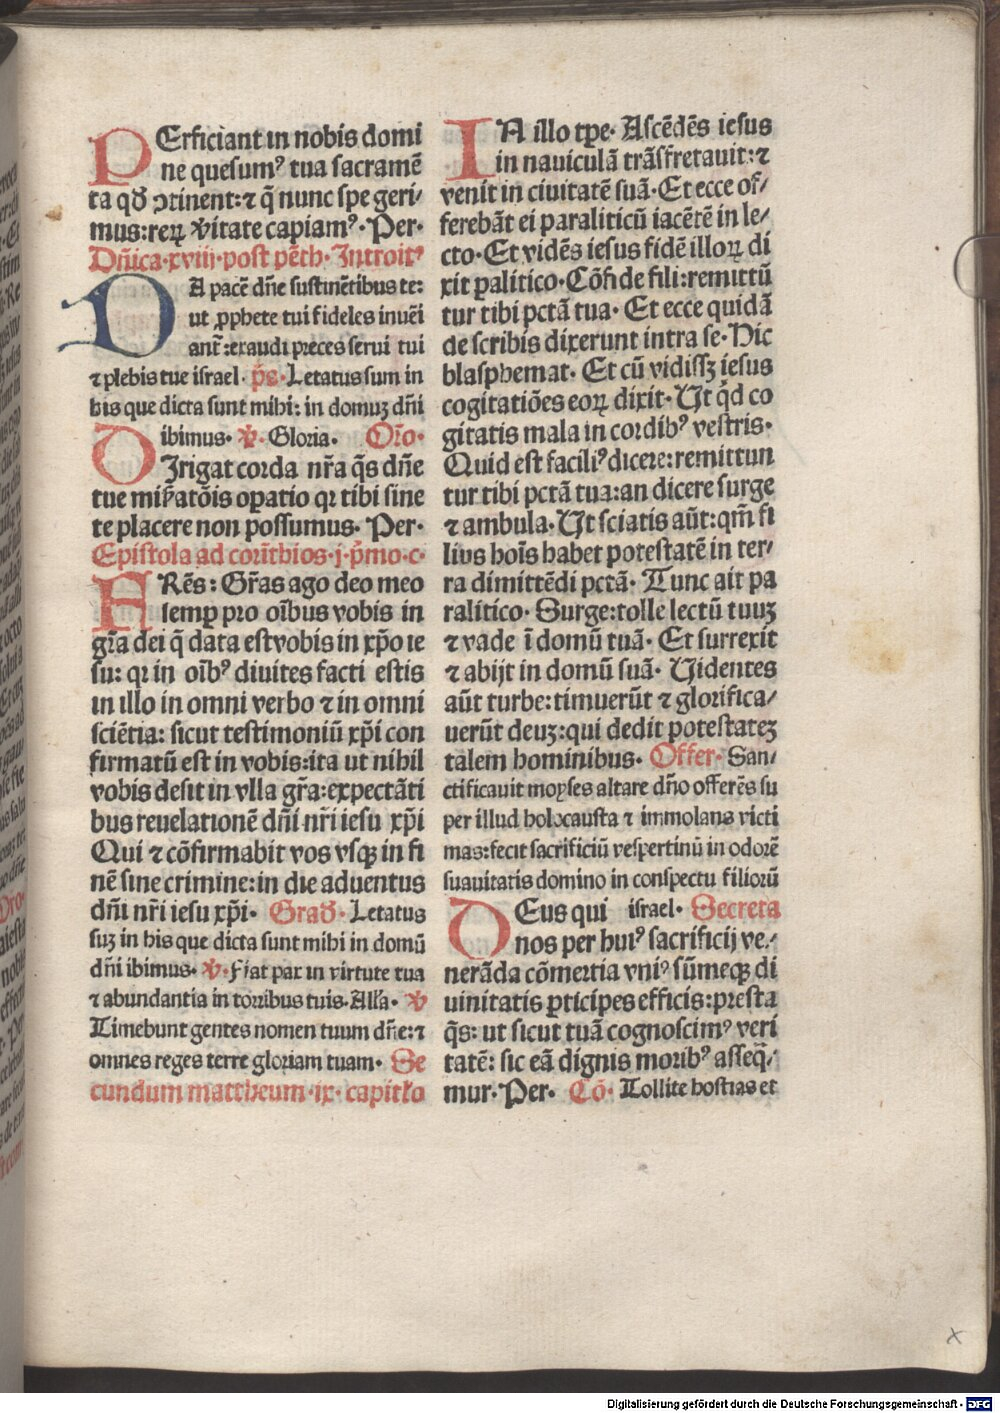 PErficiant in nobis domi
ne quesumꝰ tua sacramē
ta qđ ↄtinent: ⁊ q̄ nunc spe geri-
mus: reꝝ v̓itate capiamꝰ. Per.
Dn̄ica. xviij. post pēth. Introitꝰ
DA pacē dn̄e sustinētibus te:
ut ꝓphete tui fideles inuēi
ant̄: exaudi preces serui tui
⁊ plebis tue israel. p̄s. Letatus sum in
his que dicta sunt mihi: in domuꝫ dn̄i
ibimus. ℣. Gloria. Oro̅.
DIrigat corda nr̄a q̄s dn̄e
tue mis̄atōis oꝑatio qꝛ tibi sine
te placere non possumus. Per.
Epistola ad corīthios. j. p̄mo. c.
FRēs: Gr̄as ago deo meo
semꝑ pro oībus vobis in
gr̄a dei q̄ data est vobis in xp̄o ie
su: qꝛ in oībꝰ diuites facti estis
in illo in omni verbo ⁊ in omni
sciētia: sicut testimoniū xp̄i con
firmatū est in vobis: ita ut nihil
vobis desit in vlla gr̄a: expectāti
bus reuelationē dn̄i nr̄i iesu xp̄i
Qui ⁊ cōfirmabit vos vsqꝫ in fi
nē sine crimine: in die aduentus
dn̄i nr̄i iesu xp̄i. Građ. Letatus
suꝫ in his que dicta sunt mihi in domū
dn̄i ibimus. ℣. Fiat pax in virtute tua
⁊ abundantia in torribus tuis. All̄a. ℣
Timebunt gentes nomen tuum dn̄e: ⁊
omnes reges terre gloriam tuam. Se
cundum mattheum. ix. capitl̄o
IN illo tp̄e. Ascēdēs iesus
in nauiculā trāsfretauit: ⁊
venit in ciuitatē suā. Et ecce of-
ferebāt ei paraliticū iacētē in le-
cto. Et vidēs iesus fidē illoꝝ di
xit ꝑalitico. Cōfide fili: remittū
tur tibi pctā tua. Et ecce quidā
de scribis dixerunt intra se. Hic
blasphemat. Et cū vidissꝫ iesus
cogitatiōes eoꝝ dixit. Ut qͥd co
gitatis mala in cordibꝰ vestris.
Quid est faciliꝰ dicere: remittun
tur tibi pctā tua: an dicere surge
⁊ ambula. Ut sciatis aūt: qm̄ fi
lius hoīs habet potestatē in ter-
ra dimittēdi pctā. Tunc ait pa
ralitico. Surge: tolle lectū tuuꝫ
⁊ vade ī domū tuā. Et surrexit
⁊ abijt in domū suā. Uidentes
aūt turbe: timuerūt ⁊ glorifica-
uerūt deuꝫ: qui dedit potestateꝫ
talem hominibus. Offer. San-
ctificauit moyses altare dn̄o offerēs su
per illud holocausta ⁊ immolans victi
mas: fecit sacrificiū vespertinū in odorē
suauitatis domino in conspectu filiorū
DEus qui israel. Secreta
nos per huiꝰ sacrificij ve-
nerāda cōmertia vniꝰ sūmeqꝫ di
uinitatis ꝑticipes efficis: presta
q̄s: ut sicut tuā cognoscimꝰ veri
tatē: sic eā dignis moribꝰ asseq̄-
mur. Per. Cō. Tollite hostias et
x
Digitalisierung gefördert durch die Deutsche Forschungsgemeinschaft - DFG